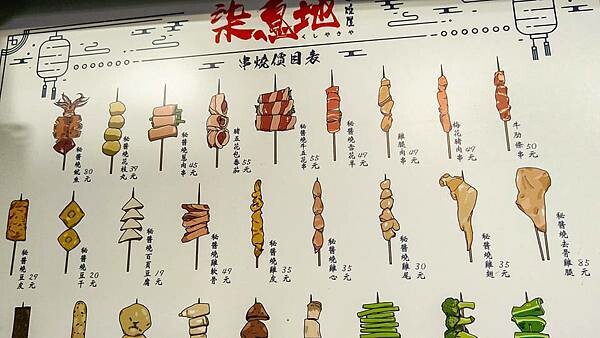 柒息地
くしやきや
串燒價目表
秘醬燒魷魚 80元
秘醬燒花枝丸 39元
秘醬燒蔥肉串 45元
豬五花包番茄 55元
秘醬燒牛五花串 55元
秘醬燒雪花羊 49元
雞腿肉串 49元
梅花豬肉串 49元
牛肋條串 50元
秘醬燒豆皮 29元
秘醬燒豆干 20元
秘醬燒百頁豆腐 19元
秘醬燒雞軟骨 49元
秘醬燒雞皮 35元
秘醬燒雞心 35元
秘醬燒雞尾 30元
秘醬燒雞翅 35元
秘醬燒去骨雞腿 85元